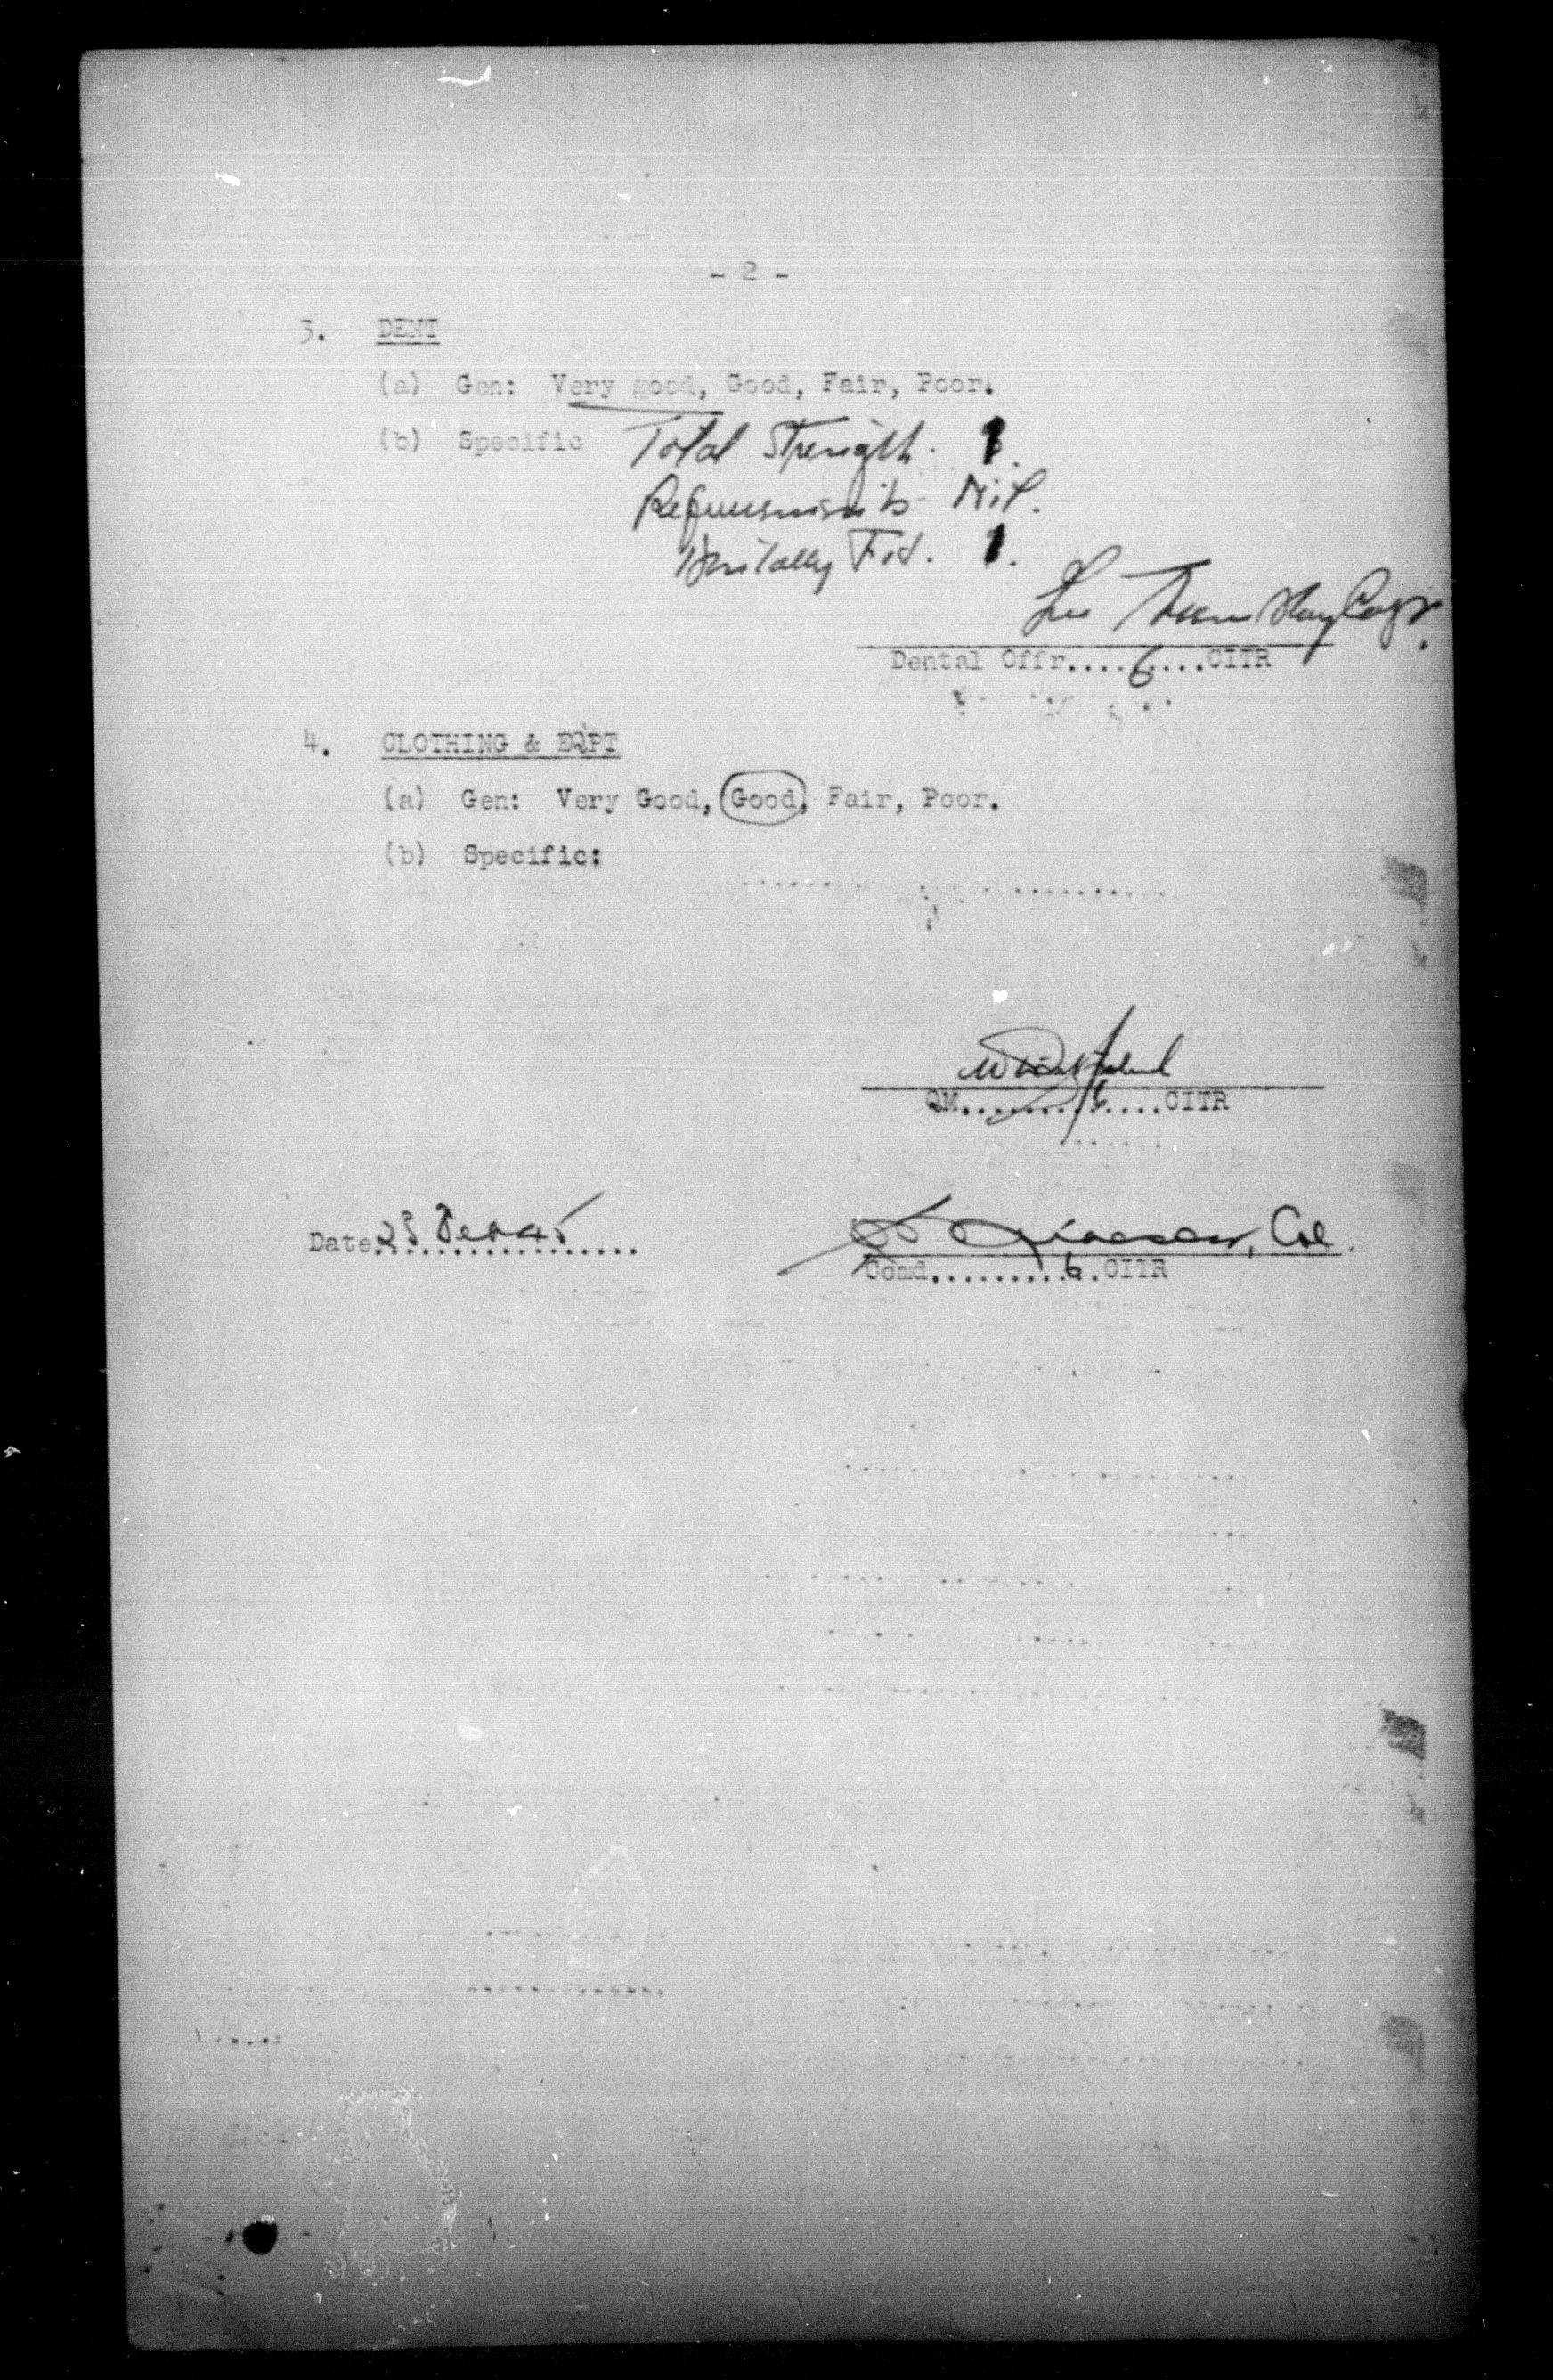 - 2 -
3. DENT
(a) Gen: Very good, Good, Fair, Poor.
(b) Specific Total Strength. 1.
Requirements Nil.
Dentally Fit. 1.
Capt.
Dental Offr....6....CITR
4. CLOTHING & EQPT
(a) Gen: Very Good, Good, Fair, Poor.
(b) Specific:
QM.............6....CITR
Date: 25 Feb 45
Col.
Comd.........6..CITR